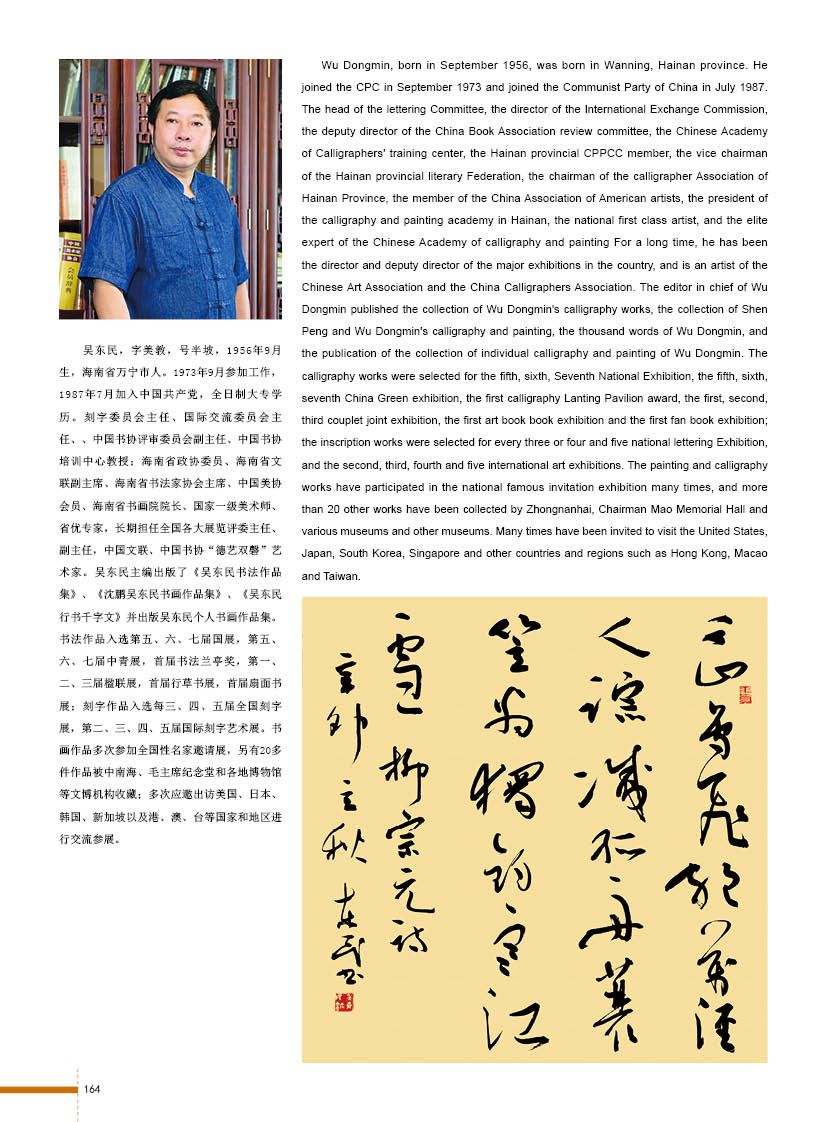 Wu Dongmin, born in September 1956, was born in Wanning, Hainan province. He
joined the CPC in September 1973 and joined the Communist Party of China in July 1987.
The head of the lettering Committee, the director of the International Exchange Commission,
the deputy director of the China Book Association review committee, the Chinese Academy
of Calligraphers' training center, the Hainan provincial CPPCC member, the vice chairman
of the Hainan provincial literary Federation, the chairman of the calligrapher Association of
Hainan Province, the member of the China Association of American artists, the president of
the calligraphy and painting academy in Hainan, the national first class artist, and the elite
expert of the Chinese Academy of calligraphy and painting For a long time, he has been
the director and deputy director of the major exhibitions in the country, and is an artist of the
Chinese Art Association and the China Calligraphers Association. The editor in chief of Wu
Dongmin published the collection of Wu Dongmin's calligraphy works, the collection of Shen
Peng and Wu Dongmin's calligraphy and painting, the thousand words of Wu Dongmin, and
the publication of the collection of individual calligraphy and painting of Wu Dongmin. The
calligraphy works were selected for the fifth, sixth, Seventh National Exhibition, the fifth, sixth,
seventh China Green exhibition, the first calligraphy Lanting Pavilion award, the first, second,
third couplet joint exhibition, the first art book book exhibition and the first fan book exhibition;
the inscription works were selected for every three or four and five national lettering Exhibition,
and the second, third, fourth and five international art exhibitions. The painting and calligraphy
works have participated in the national famous invitation exhibition many times, and more
than 20 other works have been collected by Zhongnanhai, Chairman Mao Memorial Hall and
various museums and other museums. Many times have been invited to visit the United States,
Japan, South Korea, Singapore and other countries and regions such as Hong Kong, Macao
and Taiwan.
吴东民，字美教，号半坡，1956年9月
生，海南省万宁市人。1973年9月参加工作，
1987年7月加入中国共产党，全日制大专学
历。刻字委员会主任、国际交流委员会主
任、、中国书协评审委员会副主任、中国书协
培训中心教授；海南省政协委员、海南省文
联副主席、海南省书法家协会主席、中国美协
会员、海南省书画院院长、国家一级美术师、
省优专家，长期担任全国各大展览评委主任、
副主任，中国文联、中国书协“德艺双磬”艺
术家。吴东民主编出版了《吴东民书法作品
集》、《沈鹏吴东民书画作品集》、《吴东民
行书千字文》并出版吴东民个人书画作品集。
书法作品入选第五、六、七届国展，第五、
六、七届中青展，首届书法兰亭奖，第一、
二、三届楹联展，首届行草书展，首届扇面书
展；刻字作品入选每三、四、五届全国刻字
展，第二、三、四、五届国际刻字艺术展。书
画作品多次参加全国性名家邀请展，另有20多
件作品被中南海、毛主席纪念堂和各地博物馆
等文博机构收藏；多次应邀出访美国、日本、
韩国、新加坡以及港、澳、台等国家和地区进
行交流参展。
千山鸟飞绝万径
人踪滅孤舟蓑
笠翁獨钓寒江
雪 柳宗元诗
辛卯立秋 东民书
164